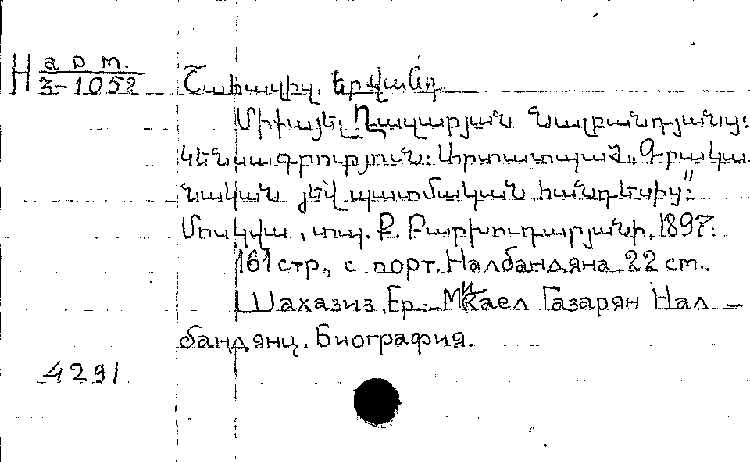 Н арт.
3-1052
Շահազիզ, Երվանդ
Միքայել Ղազարյան Նալբանդյանց:
Կենսագրություն: Արտատպած „Գրակա
նական յեվ պատմական հանդեսից":
Մոսկվա, տպ. Ք. Բարխուդարյանի, 1897.
161 стр., с порт. Налбандяна 22 см.
Шахазиз, Ер. Микаел Газарян Нал-
бандянц. Биография.
4291